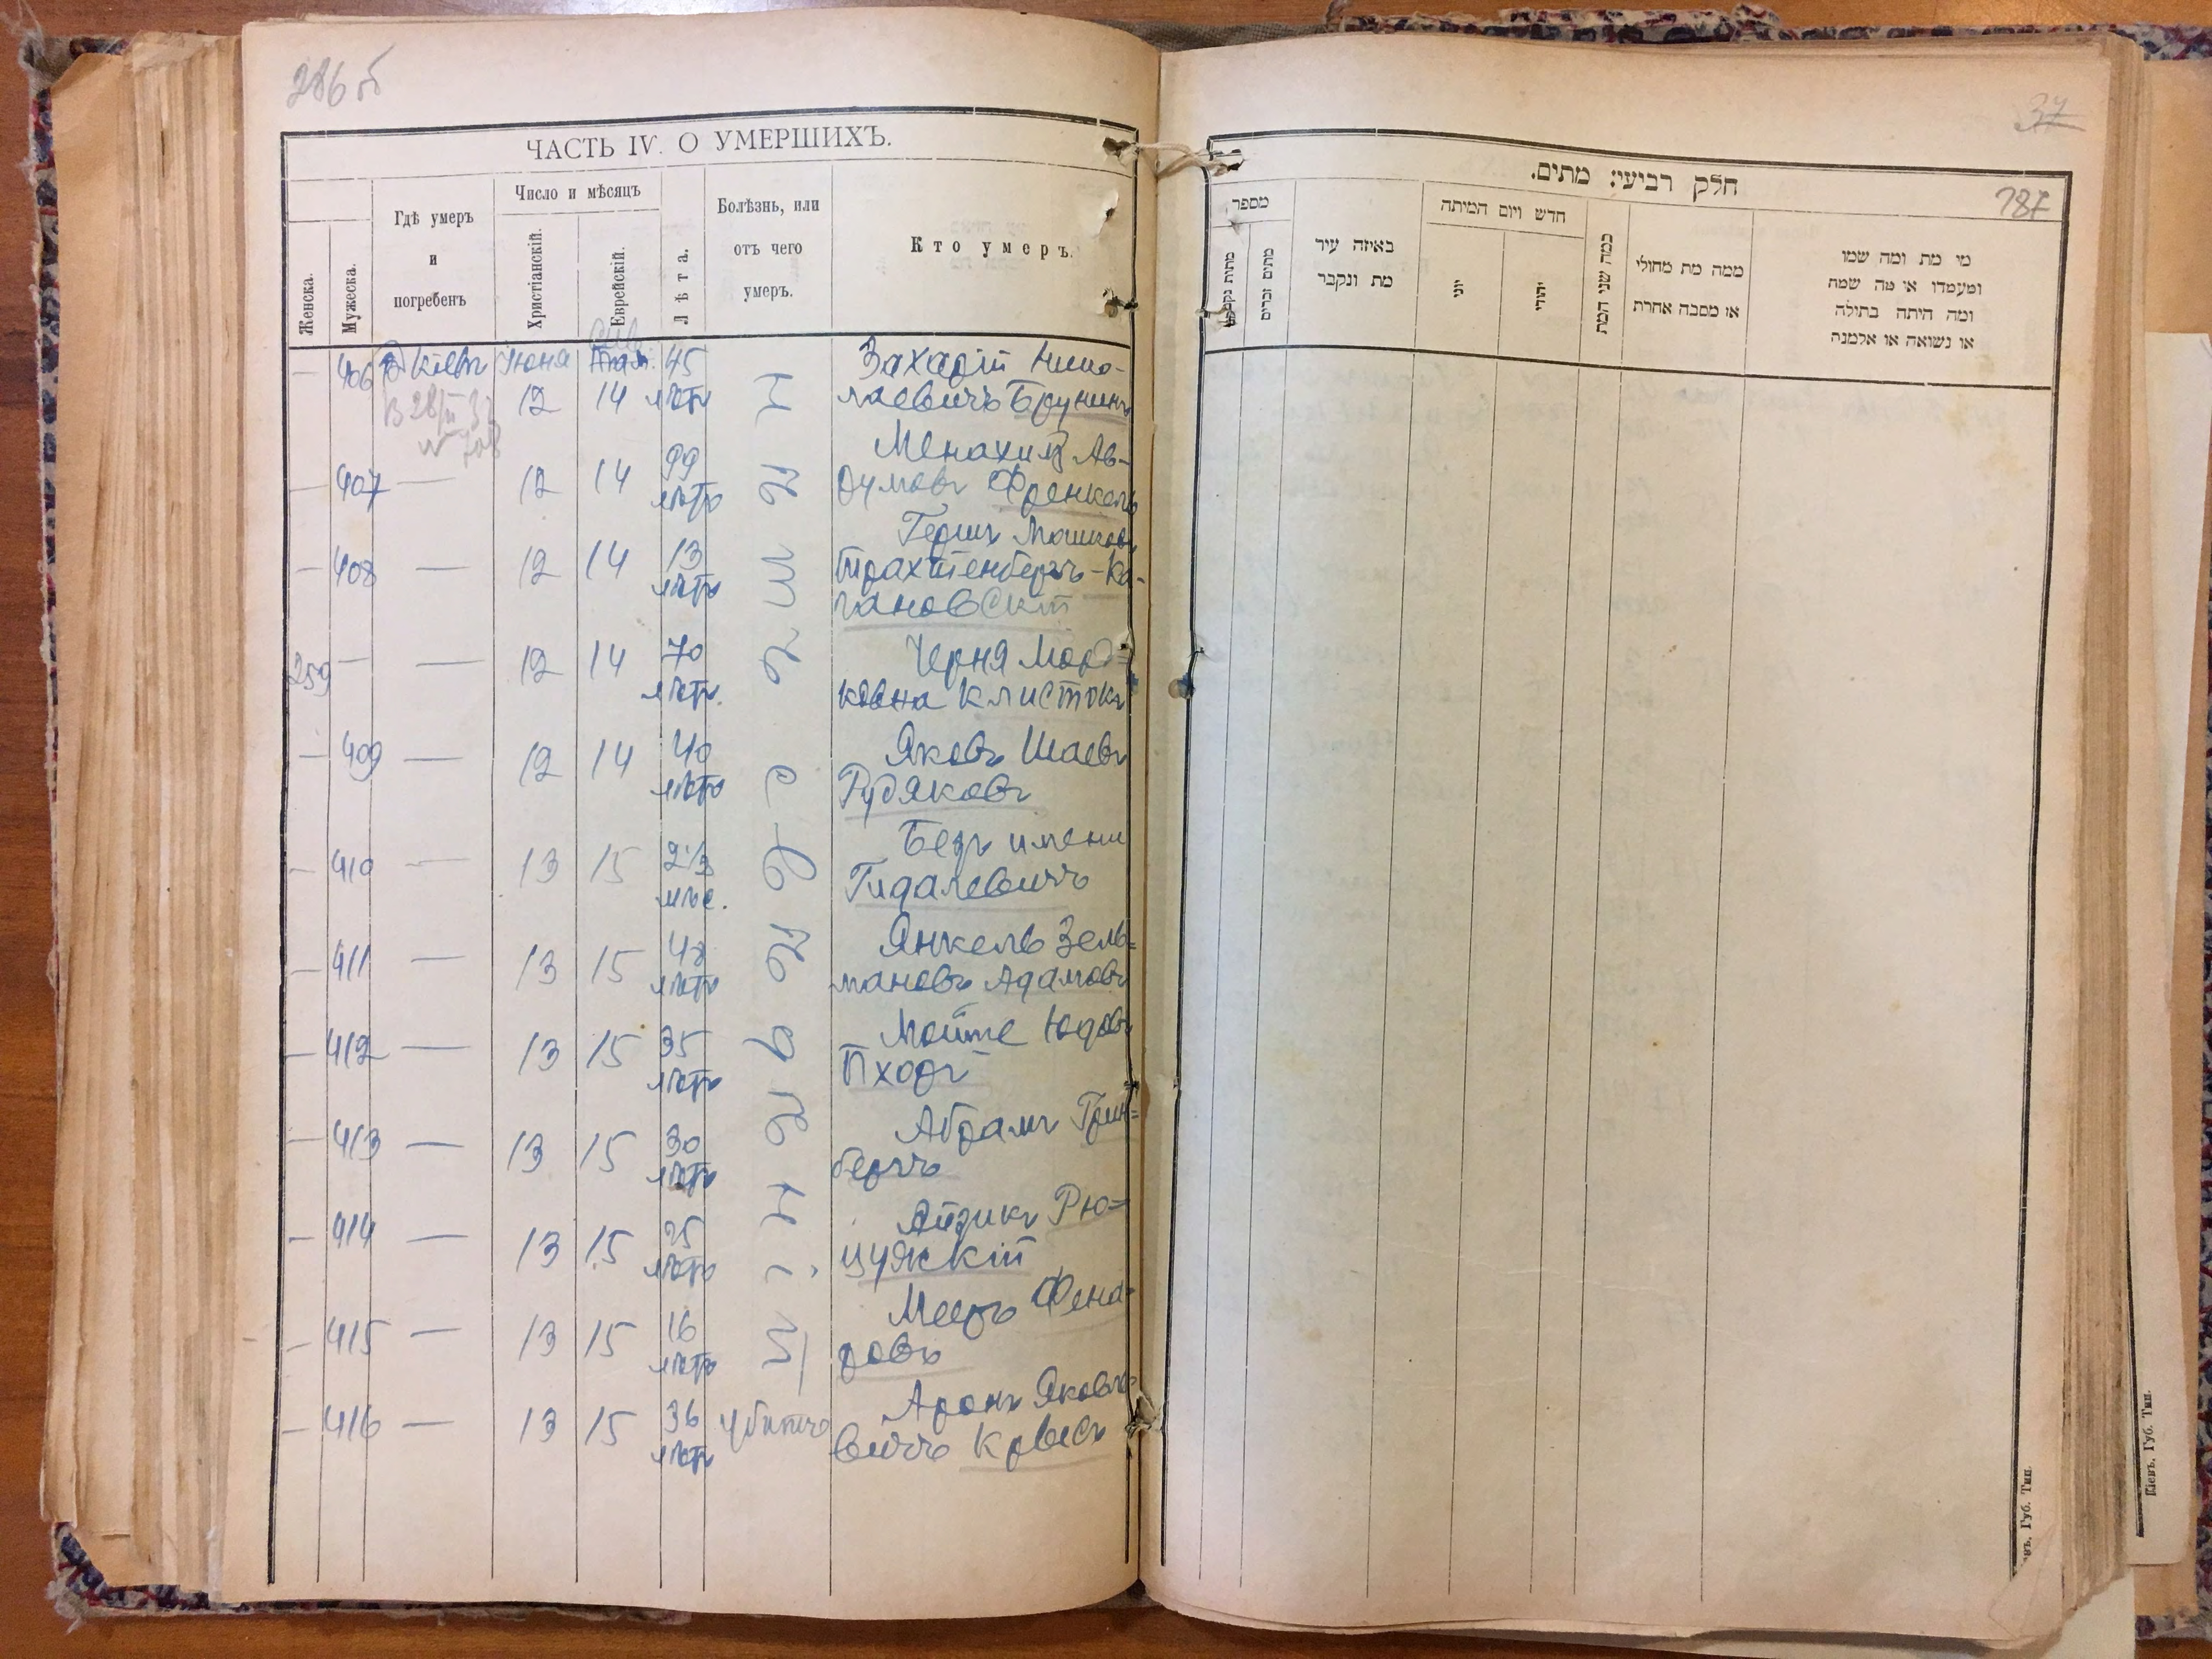 286 об
ЧАСТЬ IV. О УМЕРШИХЪ.
Женска.
Мужеска.
Гдѣ умеръ
и
погребенъ
Число и мѣсяцъ
Христіанскій.
Еврейскій.
Лѣта.
Болѣзнь, или
отъ чего
умеръ.
Кто умеръ.
— 406 Кіевъ Іюня 45 Захарій Нико-
12 14 лѣтъ лаевичъ Брунинъ
— 407 — 12 14 99 лѣтъ Менахимъ Ав-
румовъ Френкель
— 408 — 12 14 13 лѣтъ Гершъ Мошковъ
Трахтенбергъ-Ка-
гановскій
259 — — 12 14 70 лѣтъ. Черня Морд=
ковна Клистока
— 409 — 12 14 40 лѣтъ Яковъ Шаевъ
Рудяковъ
— 410 — 13 15 мѣс. Безъ имени
Гидалевичъ
— 411 — 13 15 48 лѣтъ Янкель Зель=
мановъ Адамовъ
— 412 — 13 15 35 лѣтъ Мойше Юдовъ
— 413 — 13 15 30 лѣтъ Абрамъ Грин=
бергъ
— 414 — 13 15 25 лѣтъ Айзикъ
— 415 — 13 15 16 лѣтъ Мееръ Фена=
ровъ
— 416 — 13 15 36 лѣтъ убитъ Аронъ Яковле-
вичъ Крвесъ
37
287
חלק רביעי: מתים.
מספר
מתות נקבות
מתים זכרים
באיזה עיר
מת ונקבר
חדש ויום המיתה
יוני
יהודי
כמה שני המת
ממה מת מחולי
או מסבה אחרת
מי מת ומה שמו
ומעמדו או מה שמה
ומה היתה בתולה
או נשואה או אלמנה
Губ. Тип.
Кіевъ. Губ. Тип.